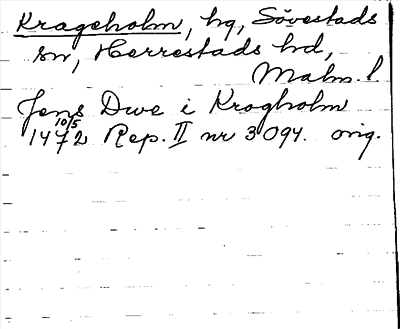 Krageholm, hg, Sövestads
sn, Herrestads hd,
Malm. l
Jens Due i Krogholm
1472 10/5 Rep. II nr 3094. orig.